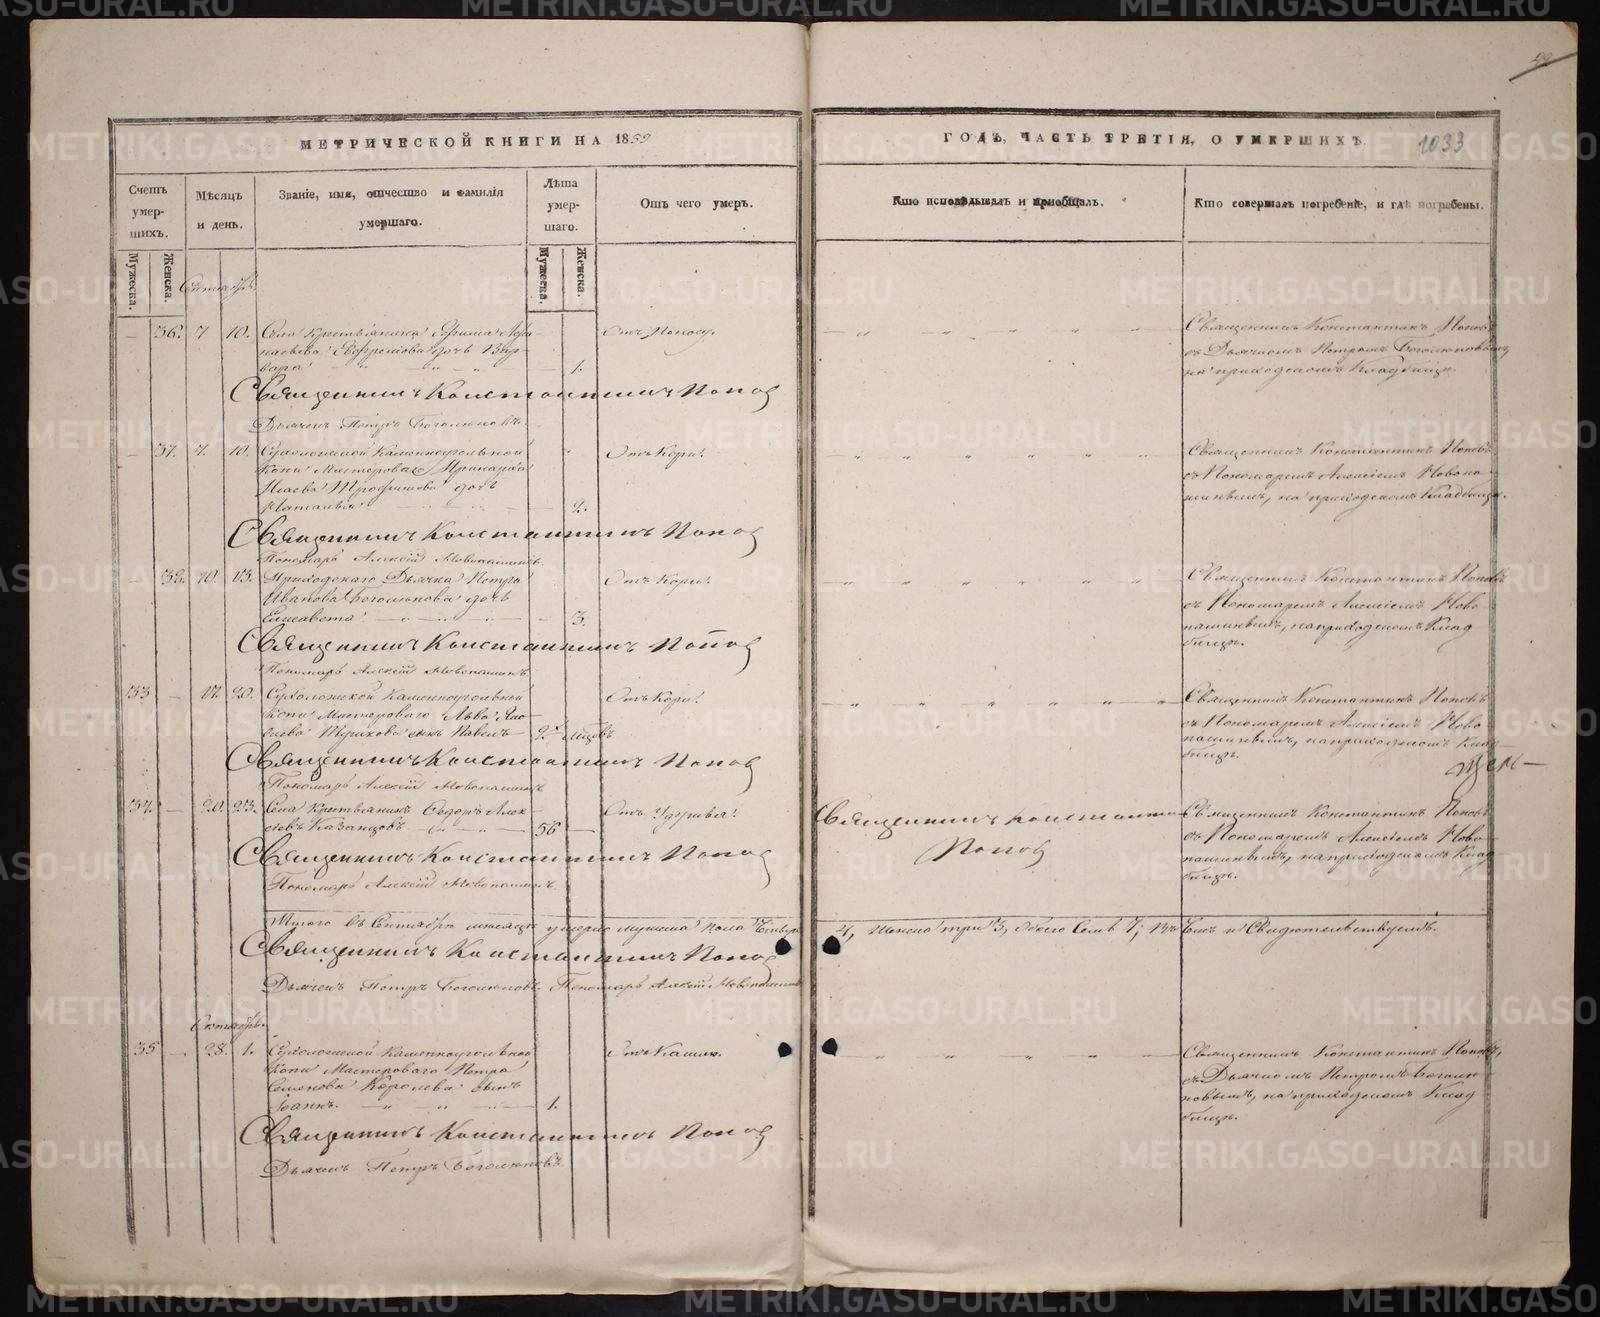 МЕТРИЧЕСКОЙ КНИГИ НА 1859
ГОДЪ, ЧАСТЬ ТРЕТІЯ, О УМЕРШИХЪ.
1033
Счетъ умерших.
Мѣсяцъ и день.
Званіе, имя, отчество и фамилія умершаго.
Лѣта умершаго.
Отъ чего умеръ.
Кто исповѣдывалъ и пріобщалъ.
Кто совершалъ погребеніе, и гдѣ погребены.
Мужеска.
Женска.
Мужеска.
Женска.
Сентябрь.
36. 7 10. Села Крестьянина
дочь Вар-
вара 1.
Отъ Поносу.
Священникъ Константинъ Поповъ
съ Дьячкомъ Петромъ Боголюповымъ
на приходскомъ Кладбищѣ.
Священникъ Константинъ Попов
Дьячекъ Петръ Боголюповъ.
37. 7. 10. Сухоложской Каменноугольной
Копи Мастероваго
Исаева Трофимова дочь
Наталия 2.
Отъ Кори.
Священникъ Константинъ Поповъ
съ Пономаремъ Алексіемъ Новопа-
шинымъ, на приходскомъ Кладбищѣ.
Священникъ Константинъ Попов
Пономарь Алексій Новопашинъ.
38. 10. 13. Приходскаго Дьячка Петра
Иванова Боголюпова дочь
Елисавета 3.
Отъ Кори.
Священникъ Константинъ Поповъ
съ Пономаремъ Алексіемъ Ново
пашинымъ, на приходскомъ Клад
бищѣ.
Священникъ Константинъ Попов
Пономарь Алексій Новопашинъ
33 17. 20. Сухоложской Каменноугольной
Копи Мастероваго Льва
сынъ Павелъ 2 мѣсяцовъ
Отъ Кори.
Священникъ Константинъ Поповъ
съ Пономаремъ Алексіемъ Ново
пашинымъ, на приходскомъ Клад-
бищѣ.
Священникъ Константинъ Попов
Пономарь Алексій Новопашинъ
34. 20. 23. Села Крестьянинъ Ѳедоръ Алек-
сіевъ Казанцовъ 56
Священникъ Константинъ
Попов
Священникъ Константинъ Поповъ
съ Пономаремъ Алексіемъ Ново
пашинымъ, на приходскомъ Клад
бищѣ.
Священникъ Константинъ Попов
Пономарь Алексій Новопашинъ.
Итого въ Сентябрѣ мѣсяцѣ умерло мужеска пола Четыре 4, Женска три 3, обоего Семь 7; въ чемъ и Свидѣтельствуемъ.
Священникъ Константинъ Попов
Дьячекъ Петръ Боголюповъ. Пономарь Алексій Новопашинъ
Октябрь.
35 28. 1. Сухоложской Каменноугольной
Копи Мастероваго Петра
Семенова Королева сынъ
Іоаннъ. 1.
Отъ Кашлю.
Священникъ Константинъ Поповъ,
съ Дьячкомъ Петромъ Боголю-
повымъ, на приходскомъ Клад
бищѣ.
Священникъ Константинъ Попов
Дьячекъ Петръ Боголюповъ.
METRIKI.GASO-URAL.RU